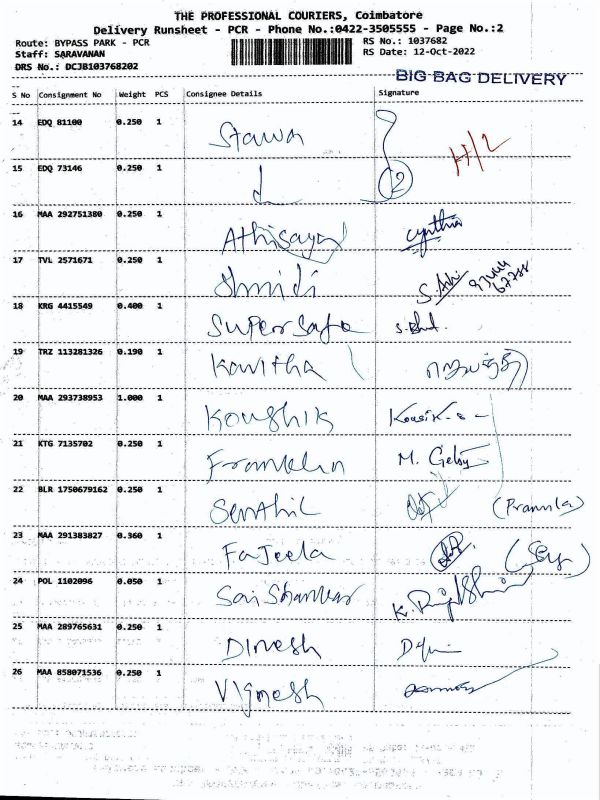 THE PROFESSIONAL COURIERS, Coimbatore
Delivery Runsheet - PCR - Phone No.:0422-3505555 - Page No.:2
Route: BYPASS PARK - PCR
RS No.: 1037682
Staff: SARAVANAN
RS Date: 12-Oct-2022
DRS No.: DCJB103768202
BIG BAG DELIVERY
S No Consignment No Weight PCS Consignee Details Signature
14 EDQ 81100 0.250 1 Stawa
H/2
15 EDQ 73146 0.250 1 2
16 MAA 292751380 0.250 1 Athisaya Cynthia
17 TVL 2571671 0.250 1
18 KRG 4415549 0.400 1 Super Safa
19 TRZ 113281326 0.190 1 Kavitha
20 MAA 293738953 1.000 1 Koushik Kousik-s
21 KTG 7135702 0.250 1 Franklin M. Gelsy
22 BLR 1750679162 0.250 1 Senthil (Pramila)
23 MAA 291383827 0.360 1 Fajeela
24 POL 1102096 0.050 1 Sai Shankar
25 MAA 289765631 0.250 1 Dinesh
26 MAA 858071536 0.250 1 Vignesh